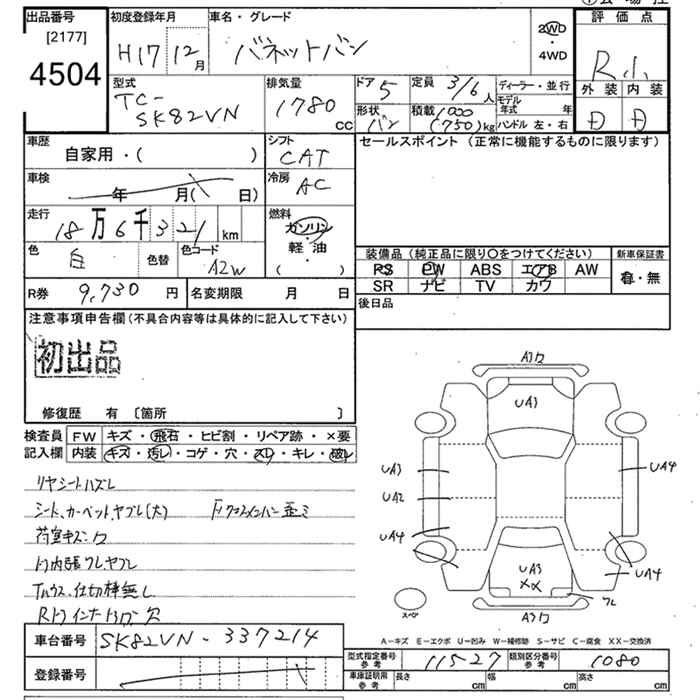 出品番号
[2177]
4504
初度登録年月
H17 12 月
車名・グレード
バネットバン
2WD
・
4WD
評価点
R小
外装 内装
D D
型式
TC-
SK82VN
排気量
1780
CC
ドア 5
定員 3/6人
形状 バン
積載 1000
(750)kg
ディーラー・並行
モデル
年式 年
ハンドル 左・右
車歴
自家用・( )
シフト
CAT
セールスポイント(正常に機能するものに限ります)
車検
年 月( 日)
冷房
AC
走行
18万6千321km
燃料
ガソリン
軽・油
( )
色 白 色替 色コード A2W
装備品(純正品に限り○をつけてください)
新車保証書
PS PW ABS エアB AW
有・無
SR ナビ TV カワ
R券 9,730 円
名変期限 月 日
後日品
注意事項申告欄(不具合内容等は具体的に記入して下さい)
初出品
修復歴 有 〔箇所 〕
検査員 FW キズ・飛石・ヒビ割・リペア跡・×要
記入欄 内装 キズ・汚レ・コゲ・穴・スレ・キレ・破レ
リヤシートハズレ
シート、カーペットヤブレ(大)
荷室キズ、ワ
ト内張ワレヤブレ
仕切棒無し
A3ワ
UA3
UA3
UA2
UA4
UA4
UA3
XX
UA4
ワレ
スペア
A3ワ
A-キズ E-エクボ U-凹み W-補修跡 S-サビ C-腐食 XX-交換済
車台番号 SK82VN-337214
登録番号
型式指定番号
参考
11527
類別区分番号
参考
1080
車庫証明用
参考
長さ cm
幅 cm
高さ cm